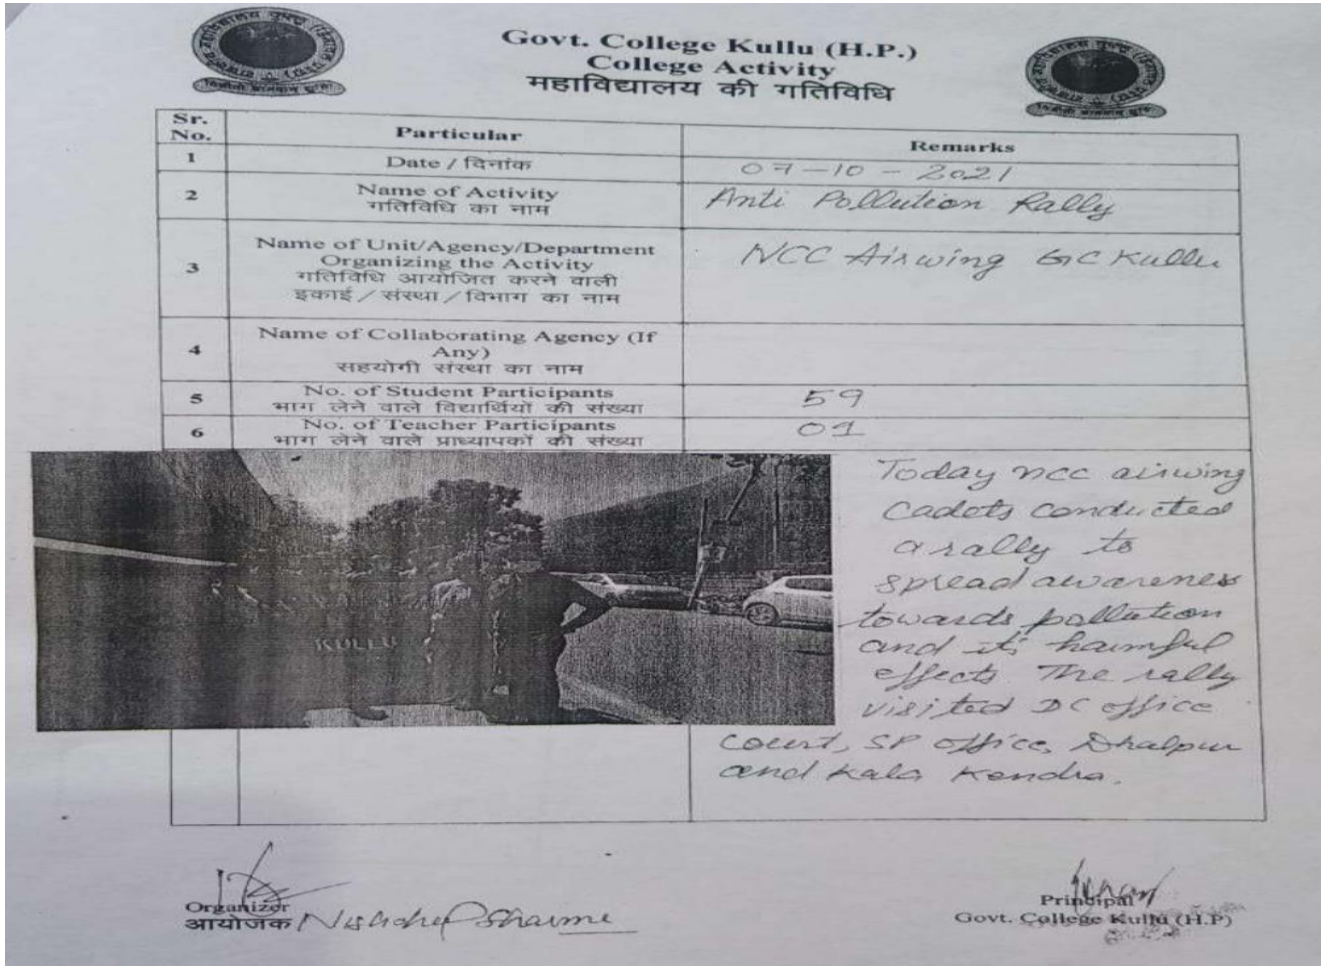 Govt. College Kullu (H.P.)
College Activity
महाविद्यालय की गतिविधि
Sr. No. Particular Remarks
1 Date / दिनांक 07-10-2021
2 Name of Activity Anti Pollution Rally
गतिविधि का नाम
3 Name of Unit/Agency/Department NCC Airwing GC Kullu
Organizing the Activity
गतिविधि आयोजित करने वाली
इकाई / संस्था / विभाग का नाम
4 Name of Collaborating Agency (If
Any)
सहयोगी संस्था का नाम
5 No. of Student Participants 59
भाग लेने वाले विद्यार्थियों की संख्या
6 No. of Teacher Participants 01
भाग लेने वाले प्राध्यापकों की संख्या
KULLU
Today ncc airwing
Cadets conducted
a rally to
spread awareness
towards pollution
and its harmful
effects. The rally
visited DC office
Court, SP office, Dhalpur
and Kala Kendra.
Organizer
आयोजक Sharma
Principal
Govt. College Kullu (H.P)